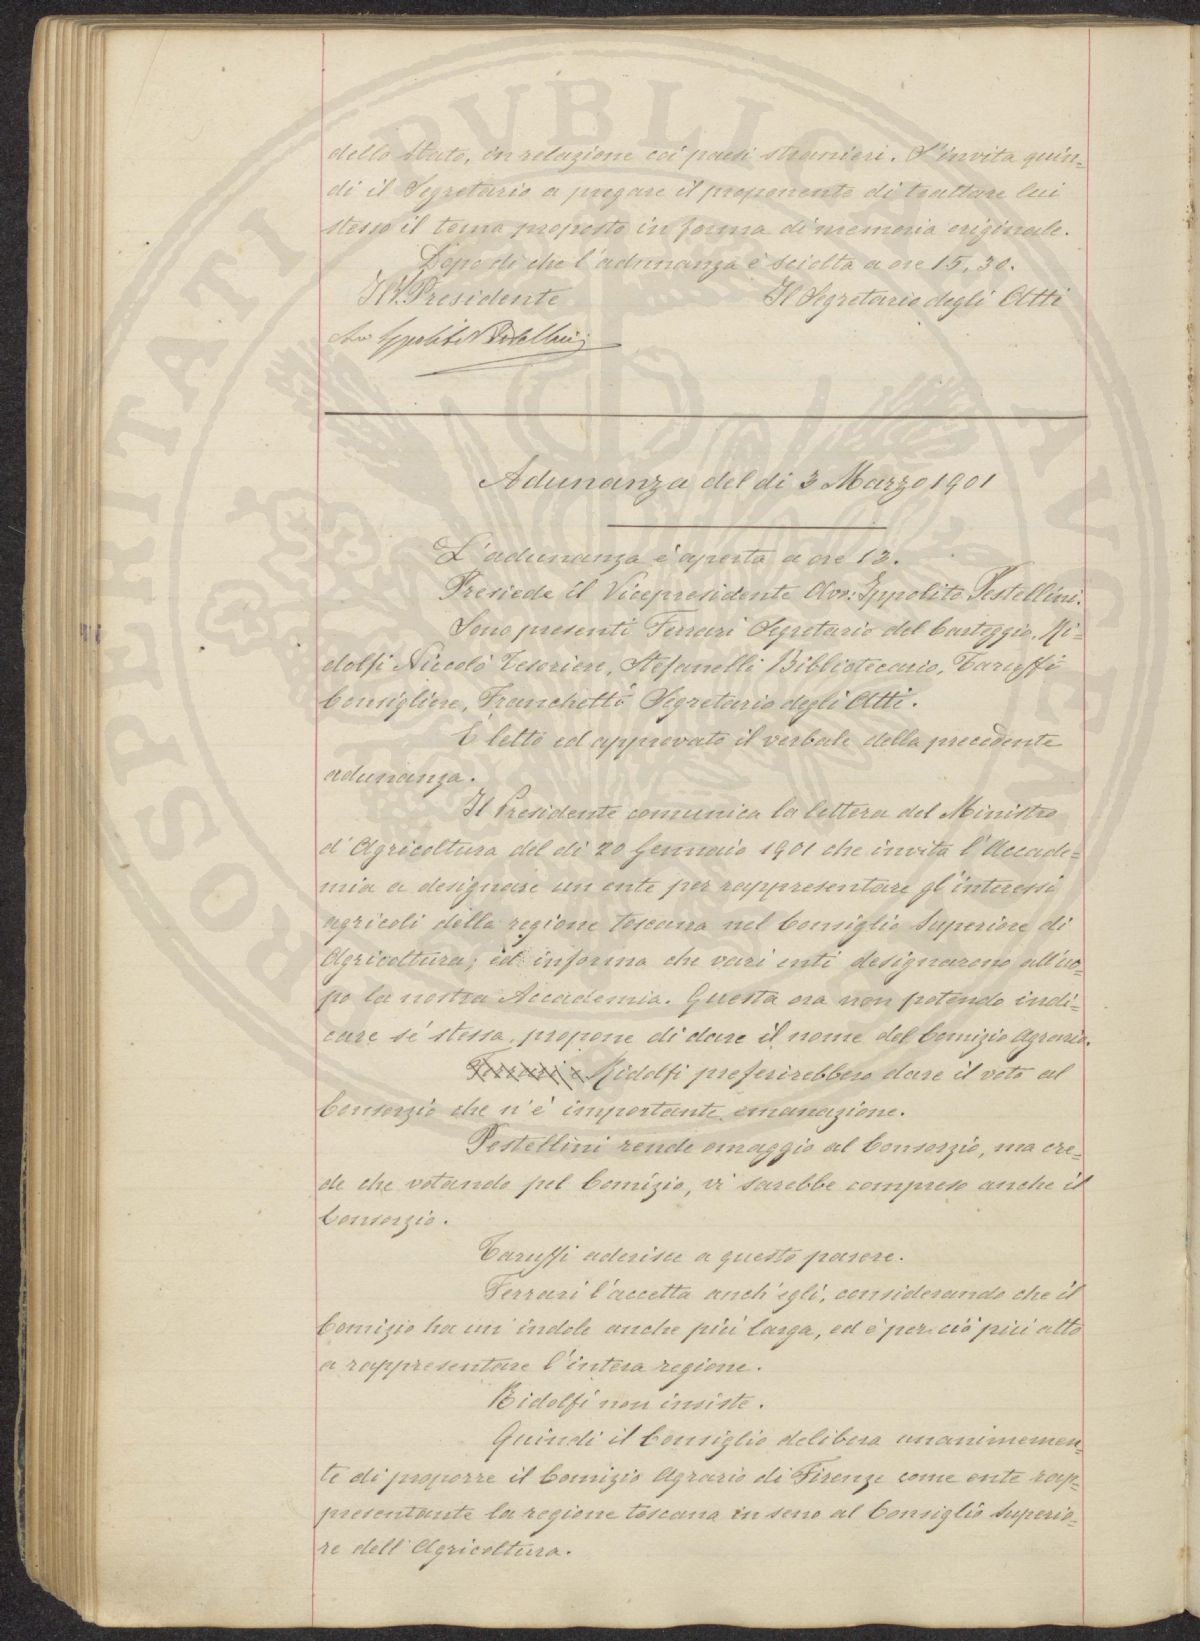 dello Stato, in relazione coi paesi stranieri. S'invita quin=
di il Segretario a pregare il proponente di trattare lui
stesso il tema proposto in forma di memoria originale.
Dopo di che l'adunanza è sciolta a ore 15,30.
Il V. Presidente Il Segretario degli Atti
Avv Ippolito Pestellini
Adunanza del dì 3 Marzo 1901
L'adunanza è aperta a ore 13.
Presiede il Vicepresidente Avv: Ippolito Pestellini.
Sono presenti Ferrari Segretario del Carteggio, Ri=
dolfi Niccolò Tesoriere, Stefanelli Bibliotecario, Taruffi
Consigliere, Franchetti Segretario degli Atti.
È letto ed approvato il verbale della precedente
adunanza.
Il Presidente comunica la lettera del Ministro
d'Agricoltura del dì 20 Gennaio 1901 che invita l'Accade=
mia a designare un ente per rappresentare gl'interessi
agricoli della regione toscana nel Consiglio Superiore di
Agricoltura; ed informa che vari enti designarono all'uo=
po la nostra Accademia. Questa ora non potendo indi=
care sé stessa, propone di dare il nome del Comizio Agrario.
Ferrari e Ridolfi preferirebbero dare il voto al
Consorzio che n'è importante emanazione.
Pestellini rende omaggio al Consorzio, ma cre=
de che votando pel Comizio, vi sarebbe compreso anche il
Consorzio.
Taruffi aderisce a questo parere.
Ferrari l'accetta anch'egli, considerando che il
Comizio ha un'indole anche più larga, ed è per ciò più atto
a rappresentare l'intera regione.
Ridolfi non insiste.
Quindi il Consiglio delibera unanimemen=
te di proporre il Comizio Agrario di Firenze come ente rap=
presentante la regione toscana in seno al Consiglio Superio=
re dell'Agricoltura.
PROSPERITATI PVBLICAE AVGENDAE